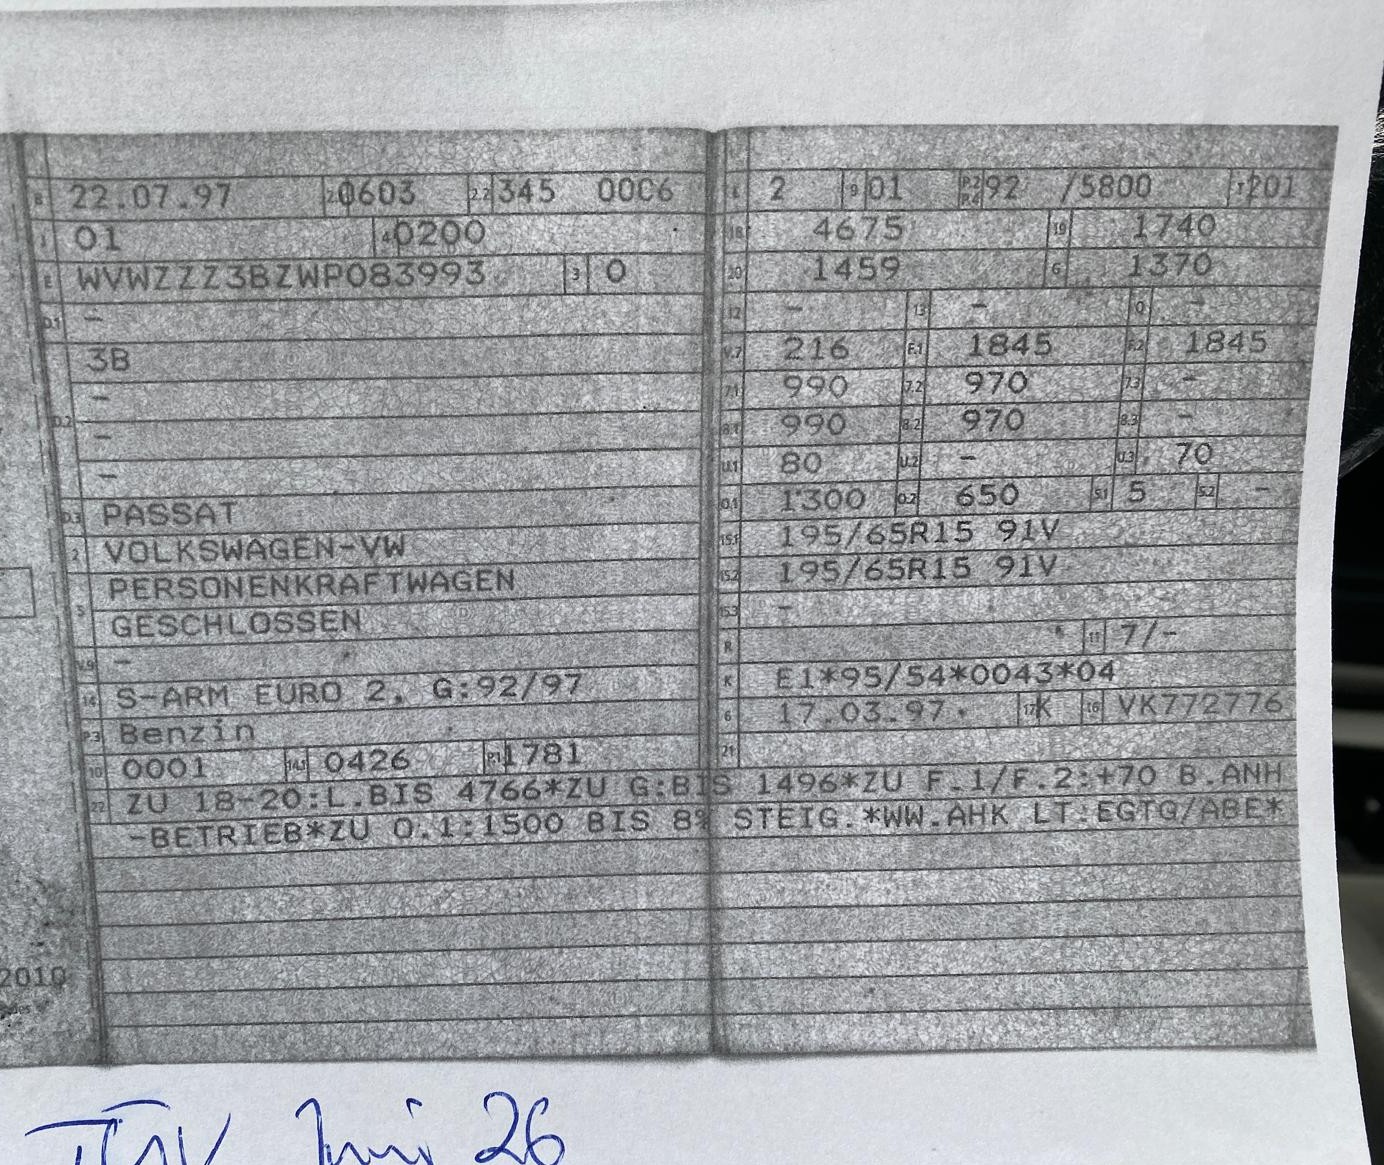 B 22.07.97 2.1 0603 2.2 345 0006
J 01 4 0200
E WVWZZZ3BZWP083993 3 0
D.1 -
3B
-
D.2 -
-
D.3 PASSAT
2 VOLKSWAGEN-VW
5 PERSONENKRAFTWAGEN
GESCHLOSSEN
V.9 -
14 S-ARM EURO 2, G:92/97
P.3 Benzin
10 0001 14.1 0426 P.1 1781
L 2 9 01 P.2 P.4 92 /5800 T 201
18 4675 19 1740
20 1459 G 1370
12 - 13 - Q -
V.7 216 F.1 1845 F.2 1845
7.1 990 7.2 970 7.3 -
8.1 990 8.2 970 8.3 -
U.1 80 U.2 - U.3 70
O.1 1300 O.2 650 S.1 5 S.2 -
15.1 195/65R15 91V
15.2 195/65R15 91V
15.3 -
R 11 7/-
K E1*95/54*0043*04
6 17.03.97 17 K 16 VK772776
21
22 ZU 18-20:L.BIS 4766*ZU G:BIS 1496*ZU F.1/F.2:+70 B.ANH
-BETRIEB*ZU O.1:1500 BIS 8% STEIG.*WW.AHK LT.EGTG/ABE*
2010
TÜV Juni 26